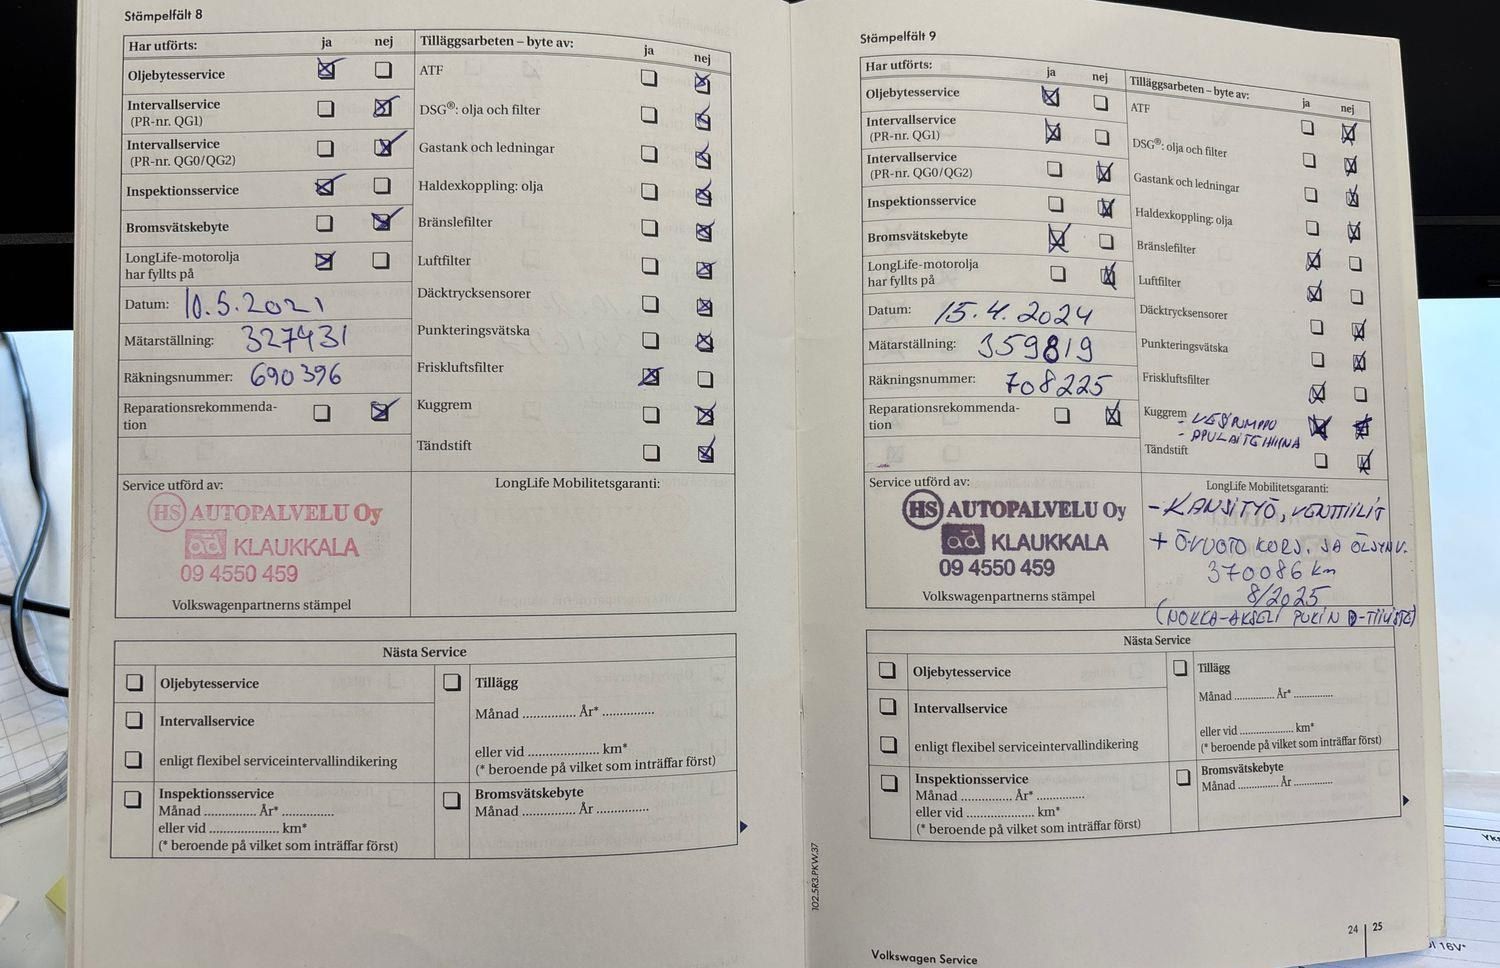 Stämpelfält 8
Har utförts: ja nej
Oljebytesservice
Intervallservice
(PR-nr. QG1)
Intervallservice
(PR-nr. QG0/QG2)
Inspektionsservice
Bromsvätskebyte
LongLife-motorolja
har fyllts på
Datum: 10.5.2021
Mätarställning: 327431
Räkningsnummer: 690396
Reparationsrekommenda-
tion
Tilläggsarbeten – byte av: ja nej
ATF
DSG®: olja och filter
Gastank och ledningar
Haldexkoppling: olja
Bränslefilter
Luftfilter
Däcktrycksensorer
Punkteringsvätska
Friskluftsfilter
Kuggrem
Tändstift
Service utförd av:
HS AUTOPALVELU Oy
ad KLAUKKALA
09 4550 459
Volkswagenpartnerns stämpel
LongLife Mobilitetsgaranti:
Nästa Service
Oljebytesservice
Intervallservice
enligt flexibel serviceintervallindikering
Inspektionsservice
Månad .............. År* ..............
eller vid ................... km*
(* beroende på vilket som inträffar först)
Tillägg
Månad .............. År* ..............
eller vid ................... km*
(* beroende på vilket som inträffar först)
Bromsvätskebyte
Månad .............. År ..............
Stämpelfält 9
Har utförts: ja nej
Oljebytesservice
Intervallservice
(PR-nr. QG1)
Intervallservice
(PR-nr. QG0/QG2)
Inspektionsservice
Bromsvätskebyte
LongLife-motorolja
har fyllts på
Datum: 15.4.2024
Mätarställning: 359819
Räkningsnummer: 708225
Reparationsrekommenda-
tion
Tilläggsarbeten – byte av: ja nej
ATF
DSG®: olja och filter
Gastank och ledningar
Haldexkoppling: olja
Bränslefilter
Luftfilter
Däcktrycksensorer
Punkteringsvätska
Friskluftsfilter
Kuggrem - VESIPUMPPU
- APULAITEHIHNA
Tändstift
Service utförd av:
HS AUTOPALVELU Oy
ad KLAUKKALA
09 4550 459
Volkswagenpartnerns stämpel
LongLife Mobilitetsgaranti:
- KANSITYÖ, VENTTIILIT
+ Ö.VUOTO KORJ. JA ÖLJYNV.
370086 km
8/2025
(NOKKA-AKSELI PUKIN D-TIIVISTE)
Nästa Service
Oljebytesservice
Intervallservice
enligt flexibel serviceintervallindikering
Inspektionsservice
Månad .............. År* ..............
eller vid ................... km*
(* beroende på vilket som inträffar först)
Tillägg
Månad .............. År* ..............
eller vid ................... km*
(* beroende på vilket som inträffar först)
Bromsvätskebyte
Månad .............. År ..............
102.5R3.PKW.37
24 | 25
Volkswagen Service
16V*